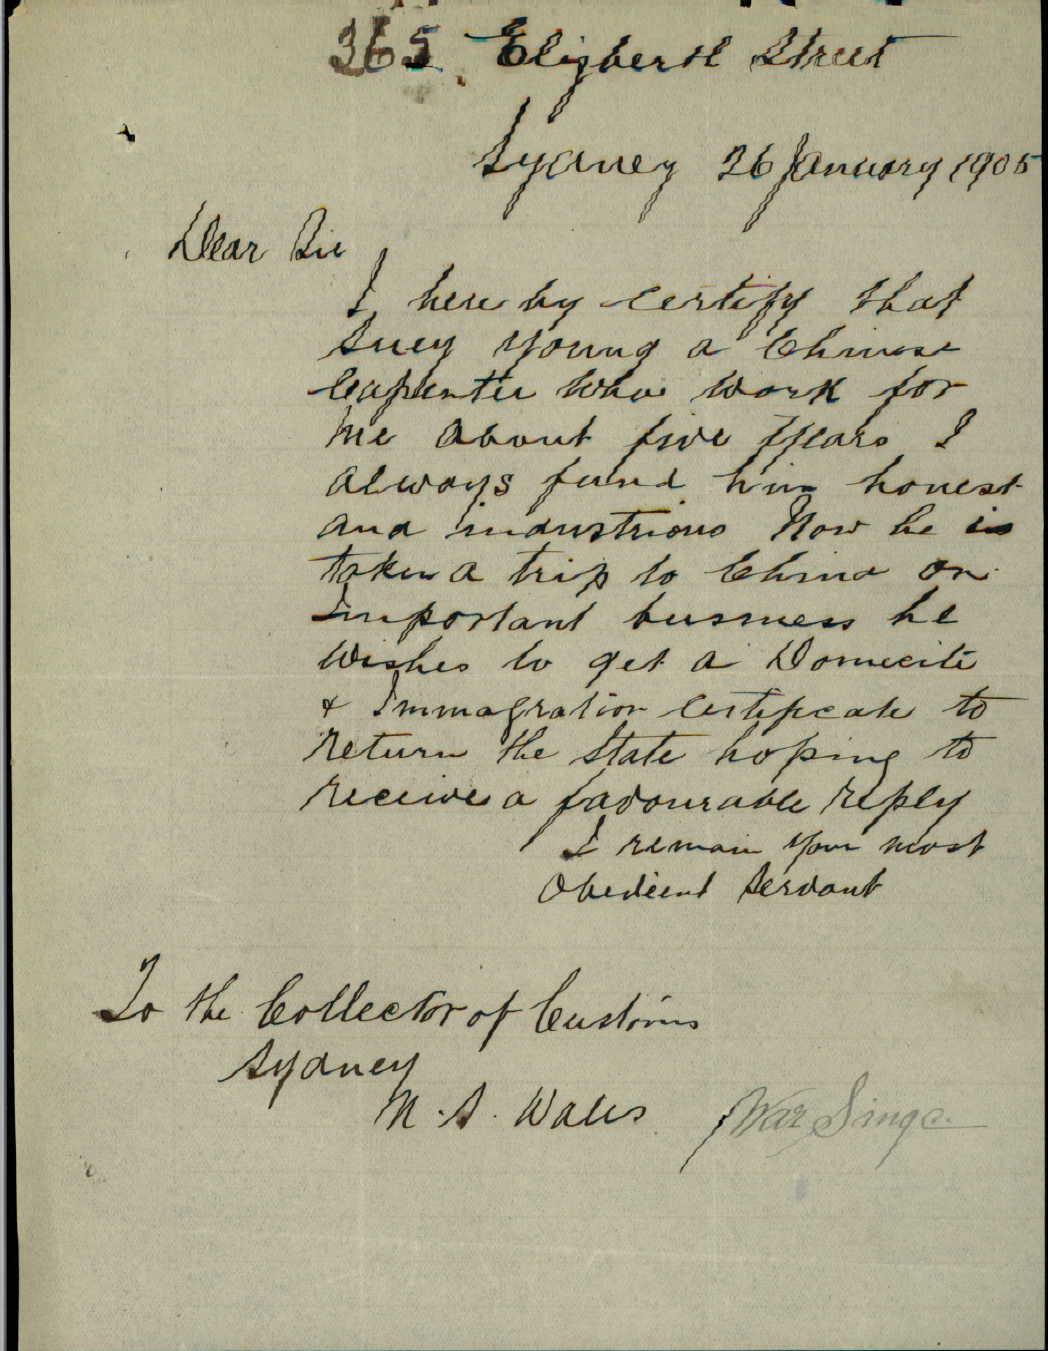 365 Elizberth Street
Sydney 26 January 1905
Dear Sir
I here by certify that
Suey Young a Chinese
Carpenter who work for
me about five years I
always fund him honest
and industrious Now he is
taken a trip to China on
Important business he
wishes to get a Domecite
& Immagration certificate to
return the State hoping to
receive a favourable reply
I remain your most
Obedient Servant
To the Collector of Customs
Sydney
N. S. Wales
War Sing